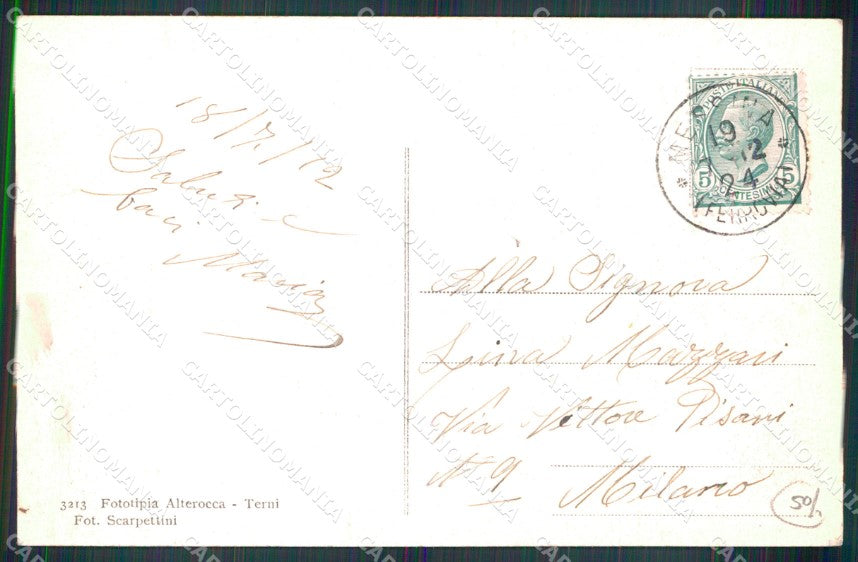 18/7/12
Saluti e
baci
Maria
3213 Fototipia Alterocca - Terni
Fot. Scarpettini
POSTE ITALIANE
5 CENTESIMI 5
19
12
24
(FERROVIA)
Alla Signora
Lina Mazzari
Via Vittore Pisani
N 9
Milano
50/
CARTOLINOMANIA